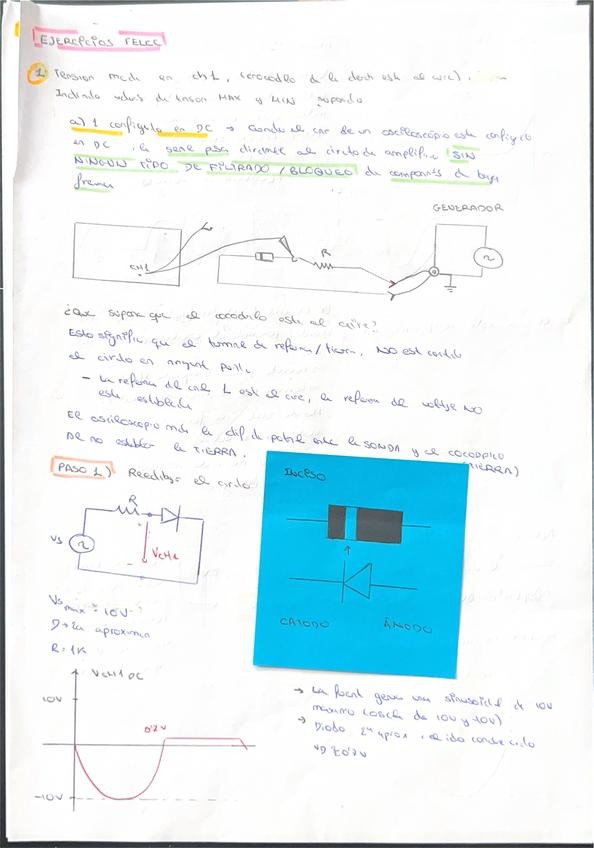 EJERCICIOS FELCC
1 Tension medi en ch1, (cocodrilo de la dech esta al aire).
Indindo valores de tension MAX y MIN supondo
a) 1 configurado en DC → Cuando el can de un osciloscopio esta configurado
en DC, la señal pasa directamente al circuito de amplific (SIN
NINGUN TIPO DE FILTRADO / BLOQUEO) de componentes de baja
frecuencia
GENERADOR
CH1
R
¿Que supone que el cocodrilo este al aire?
Esto significa que el terminal de referencia/tierra, NO está conectado
al circuito en ninguna parte.
- La referencia del canal 1 está al aire, la referencia del voltaje NO
esta establecida
El osciloscopio mide la dif de potencial entre la SONDA y el COCODRILO
(TIERRA)
Al no establecer la TIERRA.
PASO 1) Redibujar el circuito
INCISO
R
Vs
VCH1
CATODO ÁNODO
Vs max = 10V
D → 2a aproximación
R = 1K
VCH1 DC
10V
0'7V
-10V
→ La fuente genera una sinusoidal de 10V
máximo (oscila de 10V y -10V)
→ Diodo 2ª aprox,
VD = 0'7V